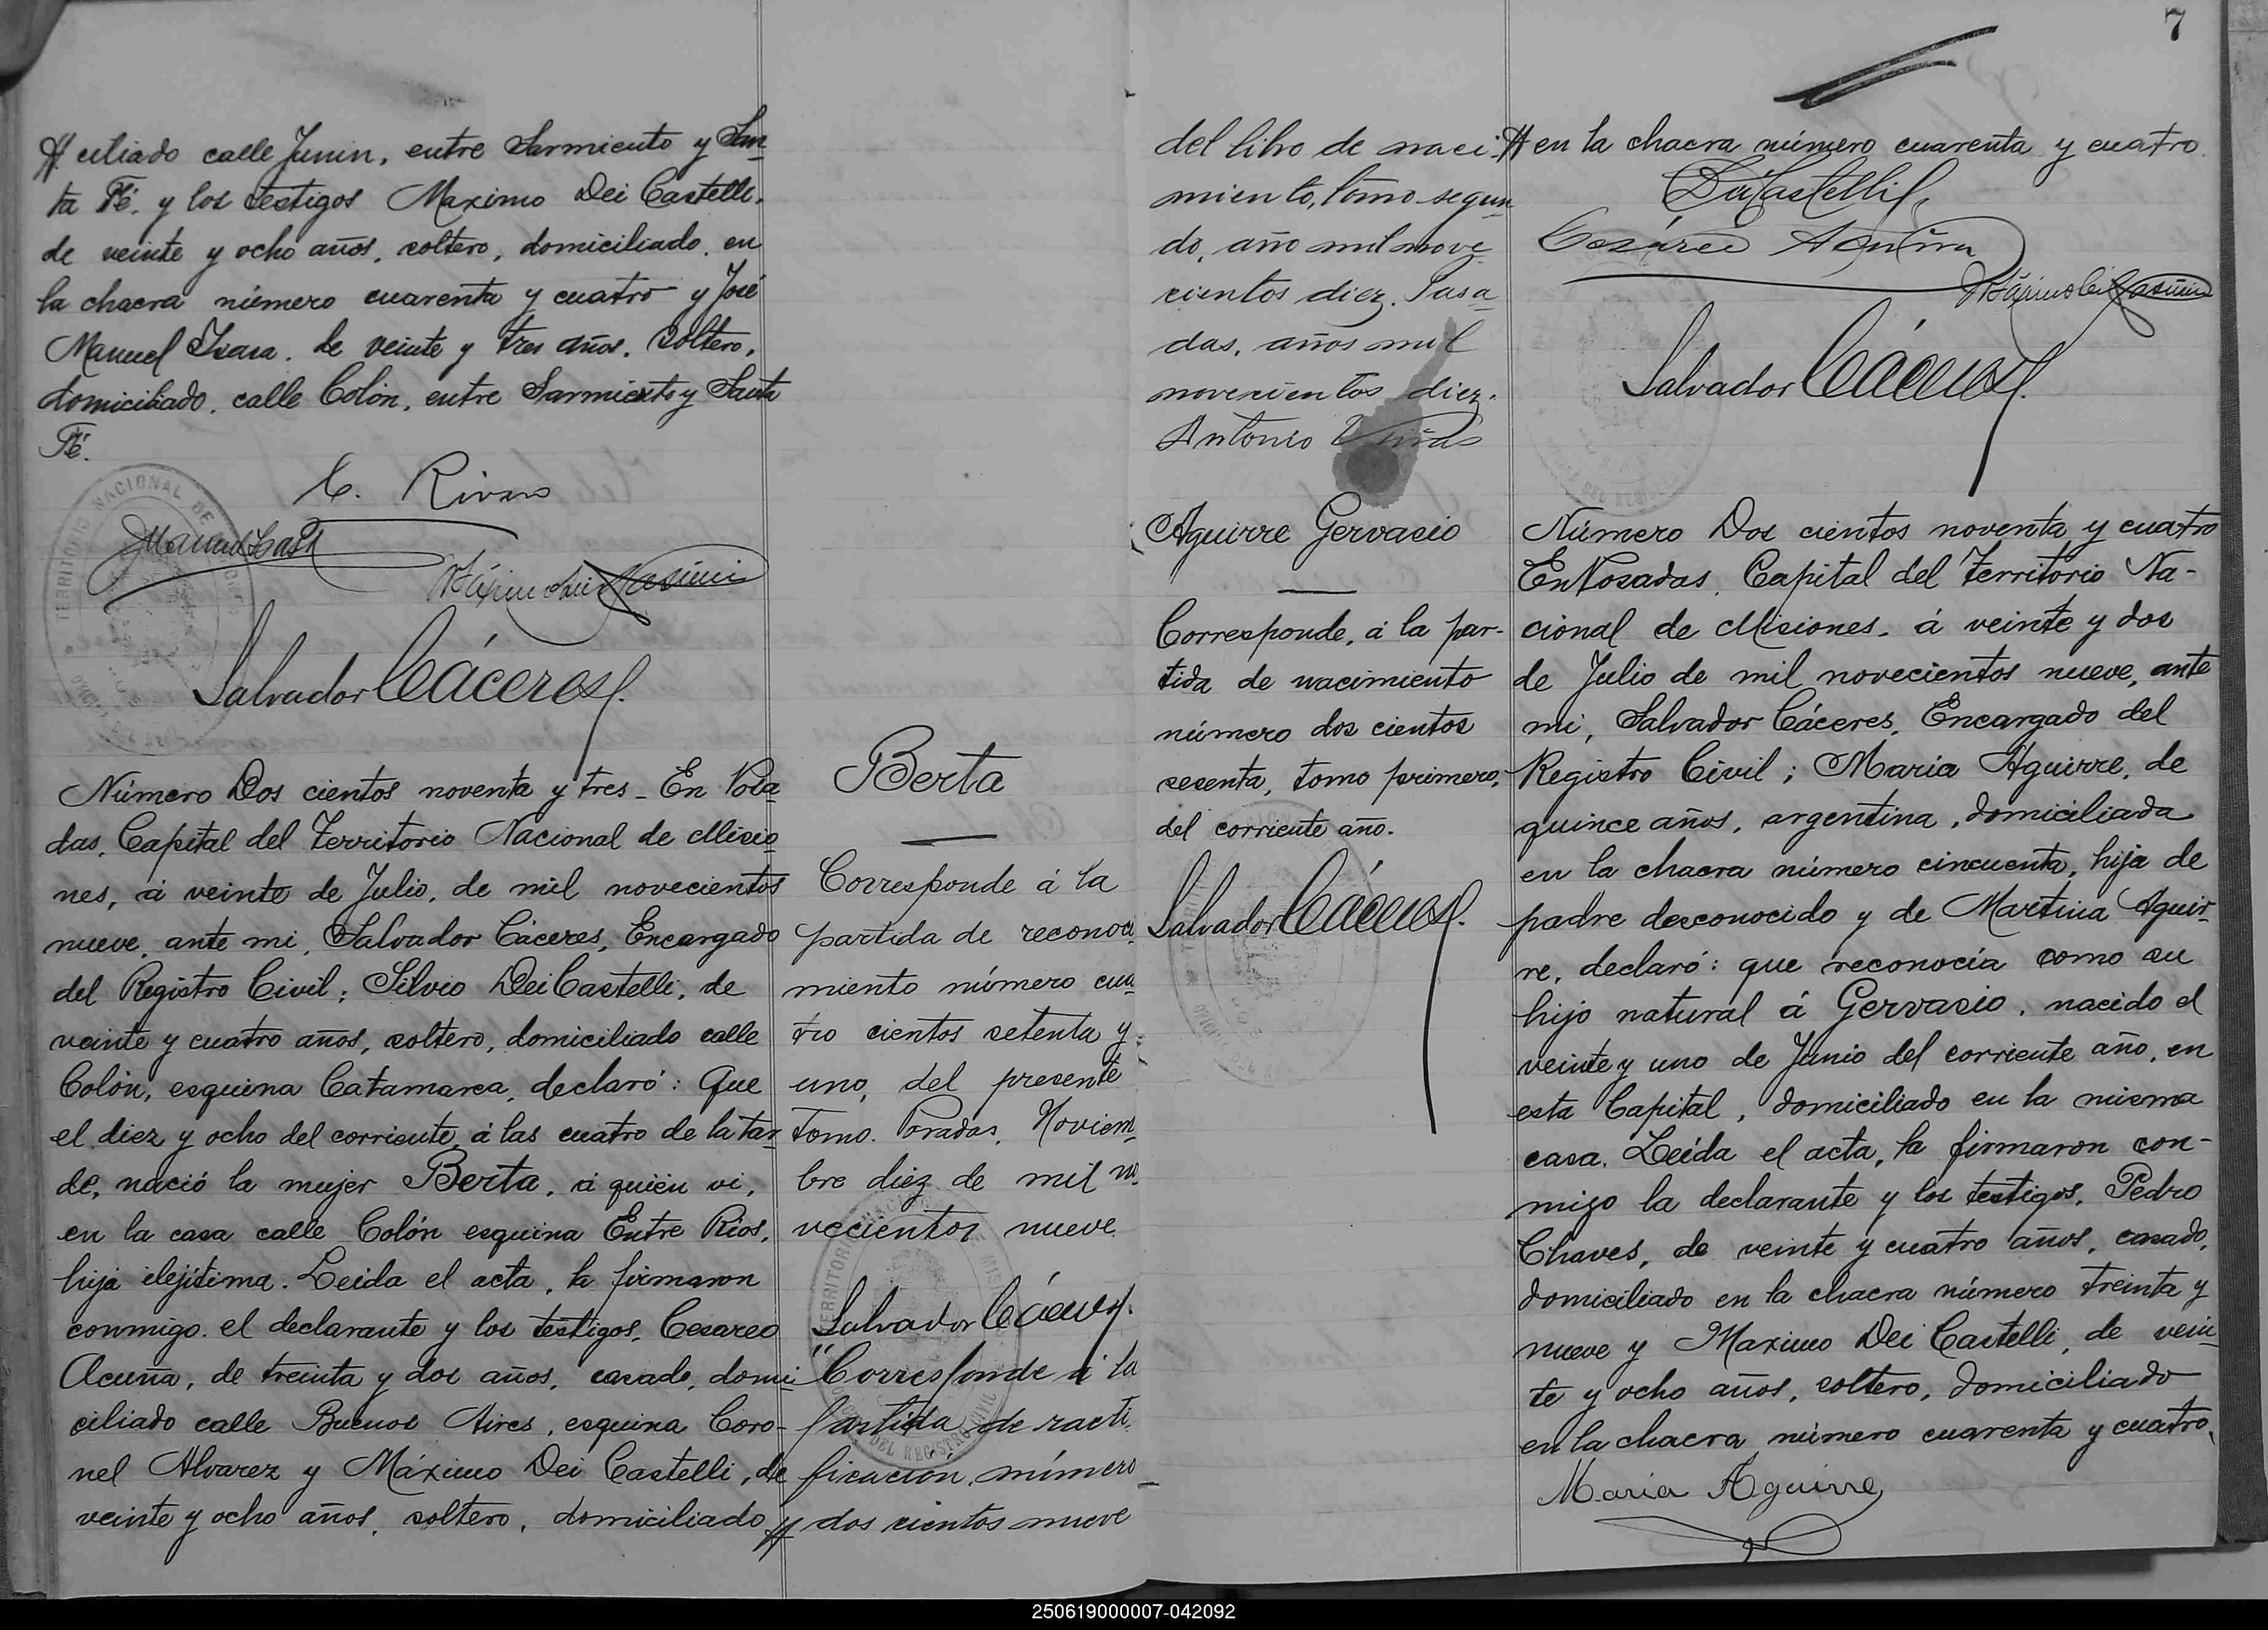 ciliado calle Junin, entre Sarmiento y San-
ta Fé. y los testigos Maximo Dei Castelli,
de veinte y ocho años, soltero, domiciliado, en
la chacra número cuarenta y cuatro y José
Manuel Isasa. de veinte y tres años. Soltero,
domiciliado, calle Colón, entre Sarmiento y Santa
Fé.
C. Rivas
Manuel Isasa
Salvador Cáceres
Número Dos cientos noventa y tres _ En Posa
das, Capital del Territorio Nacional de Misio
nes, á veinte de Julio, de mil novecientos
nueve, ante mi, Salvador Cáceres, Encargado
del Registro Civil; Silvio Dei Castelli, de
veinte y cuatro años, soltero, domiciliado calle
Colón, esquina Catamarca, declaró: Que
el diez y ocho del corriente, á las cuatro de la tar
de, nació la mujer Berta, á quién vi,
en la casa calle Colón esquina Entre Rios,
hija ilejítima. Leida el acta, la firmaron
conmigo. el declarante y los testigos, Cesareo
Acuña, de treinta y dos años, casado, domi
ciliado calle Buenos Aires, esquina Coro-
nel Alvarez y Máximo Dei Castelli, de
veinte y ocho años, soltero, domiciliado
Berta
Corresponde á la
partida de reconoci
miento número cua
tro cientos setenta y
uno, del presente
tomo. Posadas, Noviem-
bre diez de mil no
vecientos nueve
Salvador Cáceres
"Corresponde á la
partida de racti
ficacion, número
dos cientos nueve
del libro de naci-
miento, tomo segun-
do, año mil nove
cientos diez. Posa-
das, años mil
novecientos diez.
Antonio
Aguirre Gervasio
Corresponde, á la par-
tida de nacimiento
número dos cientos
sesenta, tomo primero,
del corriente año.
Salvador Cáceres
7
en la chacra número cuarenta y cuatro.
DeiCastelli
Cesáreo Acuña
Salvador Cáceres
Número Dos cientos noventa y cuatro
En Posadas, Capital del Territorio Na-
cional de Misiones, á veinte y dos
de Julio de mil novecientos nueve, ante
mi, Salvador Cáceres, Encargado del
Registro Civil; Maria Aguirre, de
quince años, argentina, domiciliada
en la chacra número cincuenta, hija de
padre desconocido y de Martina Aguir-
re, declaró: que reconocía como su
hijo natural á Gervasio, nacido el
veinte y uno de Junio del corriente año, en
esta Capital, domiciliado en la misma
casa. Leída el acta, la firmaron con-
migo la declarante y los testigos, Pedro
Chaves, de veinte y cuatro años, casado,
domiciliado en la chacra número treinta y
nueve y Maximo Dei Castelli, de vein-
te y ocho años, soltero, domiciliado
en la chacra número cuarenta y cuatro.
Maria Aguirre
250619000007-042092